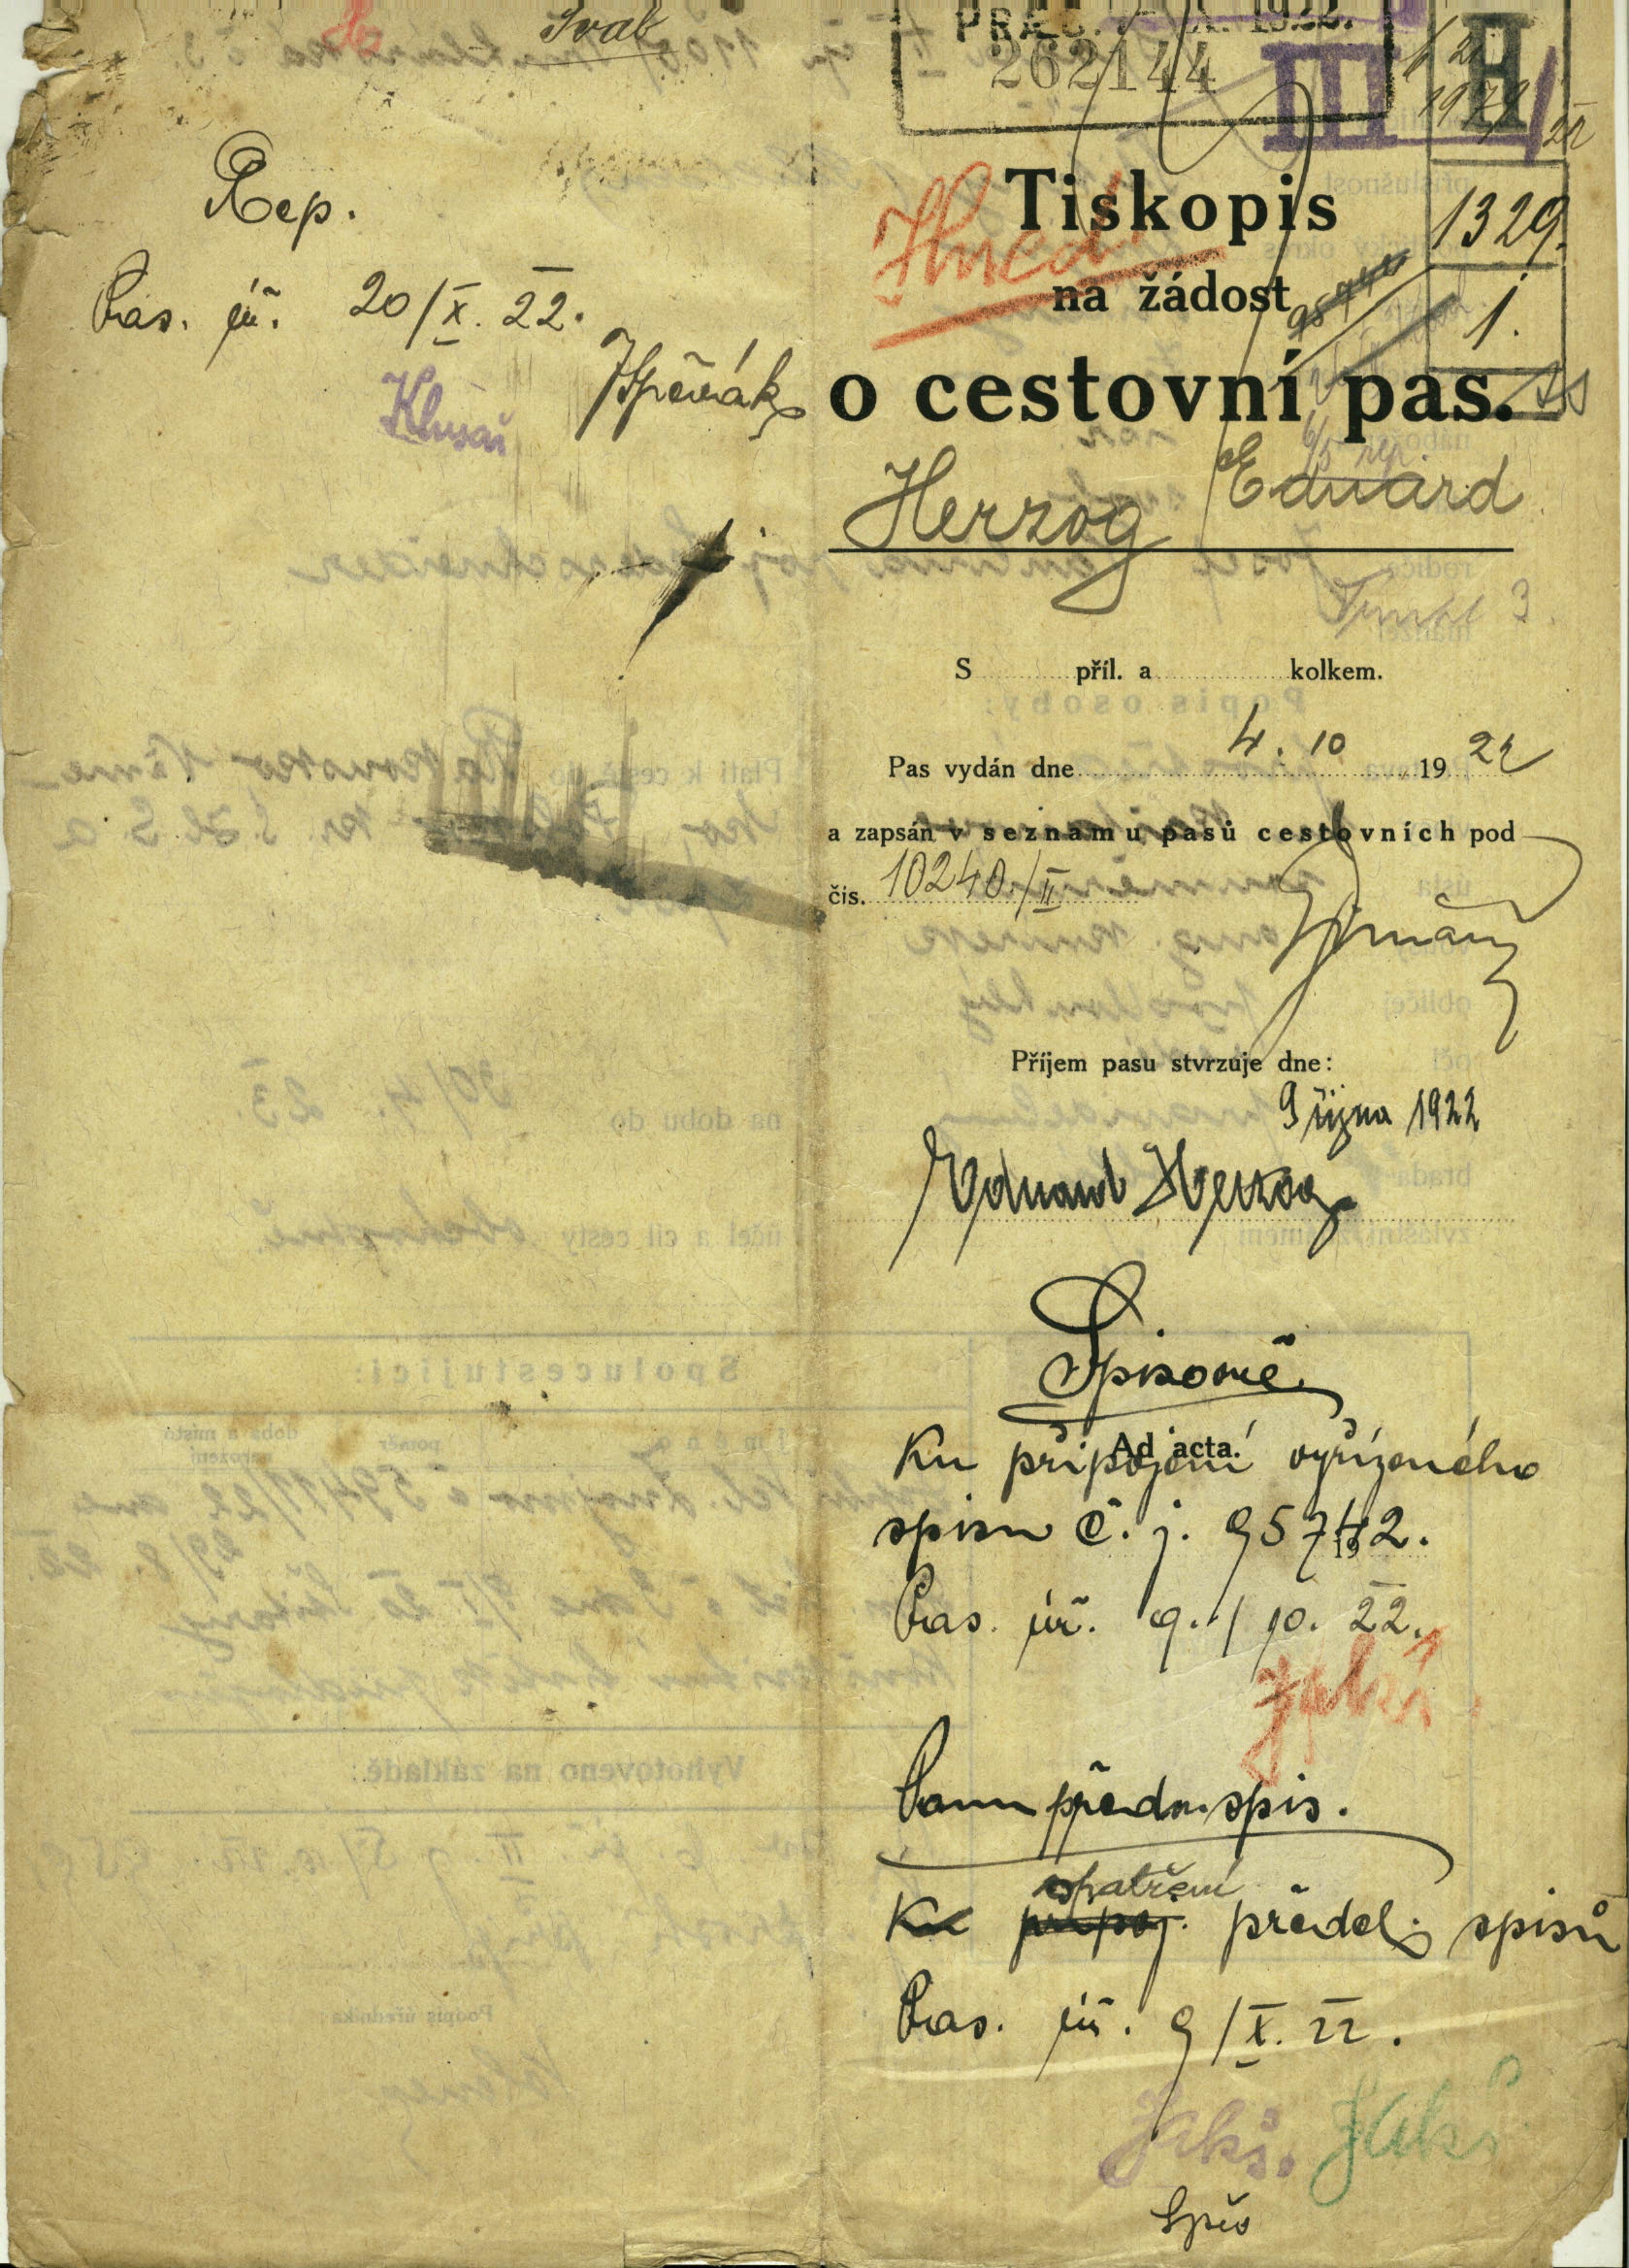 Rep.
Pas. úř. 20/X. 22.
PRAES. 1922.
262144
III
H
1329.
1.
Ihned
Tiskopis
na žádost
o cestovní pas.
Herzog Eduard
S příl. a kolkem.
Pas vydán dne 4. 10 1922
a zapsán v seznamu pasů cestovních pod
čís. 10240/II
Příjem pasu stvrzuje dne:
9 října 1922
Eduard Herzog
Spisovně.
Ad acta.
Ku připojení vyřízeného
spisu č. j. 95742.
Pas. úř. 9./10. 22.
Jakš
Panu předn. spis.
opatření
Ku připoj. předch. spisů
Pas. úř. 9/X. 22.
Jakš. Jakš